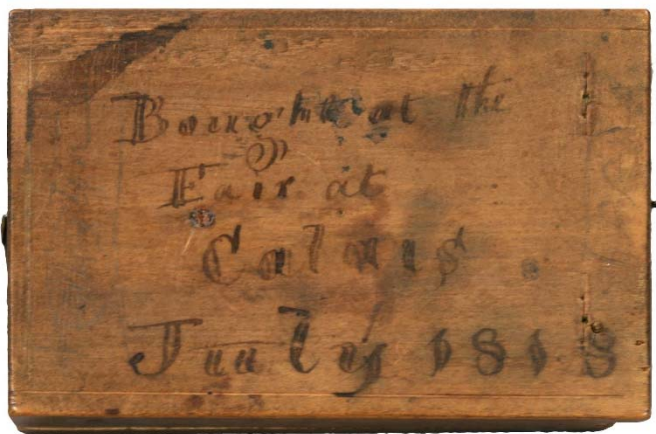 Bought at the
Fair at
Calais
July 1818